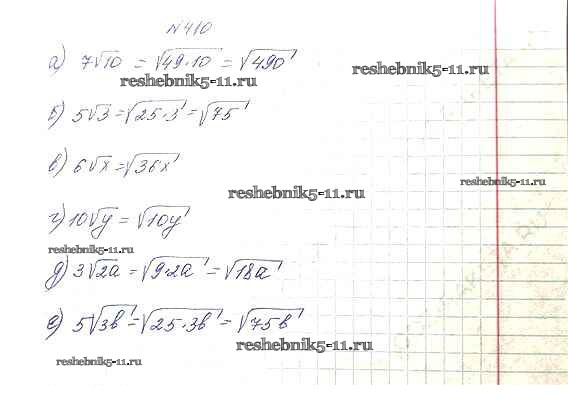 №410
а) 7√10 = √49·10 = √490
reshebnik5-11.ru
reshebnik5-11.ru
б) 5√3 = √25·3 = √75
в) 6√x = √36x
reshebnik5-11.ru
reshebnik5-11.ru
г) 10√y = √10y
reshebnik5-11.ru
д) 3√2a = √9·2a = √18a
е) 5√3b = √25·3b = √75b
reshebnik5-11.ru
reshebnik5-11.ru